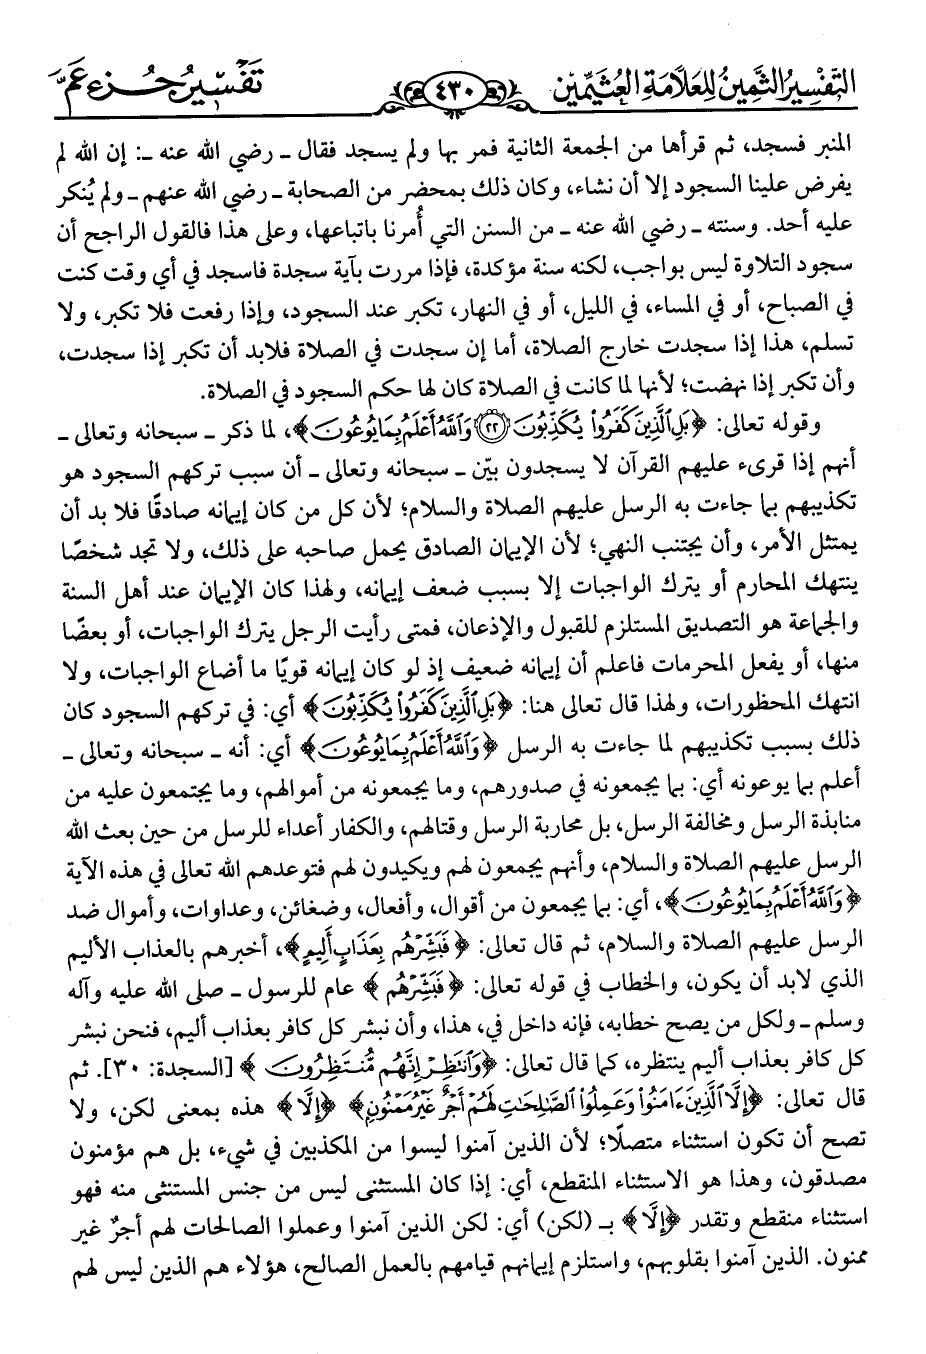 التفسير الثمين للعلامة العثيمين ٤٣٠ تفسير جزء عم
المنبر فسجد، ثم قرأها من الجمعة الثانية فمر بها ولم يسجد فقال ـ رضي الله عنه ـ: إن الله لم
يفرض علينا السجود إلا أن نشاء، وكان ذلك بمحضر من الصحابة ـ رضي الله عنهم ـ ولم يُنكر
عليه أحد. وسنته ـ رضي الله عنه ـ من السنن التي أُمرنا باتباعها، وعلى هذا فالقول الراجح أن
سجود التلاوة ليس بواجب، لكنه سنة مؤكدة، فإذا مررت بآية سجدة فاسجد في أي وقت كنت
في الصباح، أو في المساء، في الليل، أو في النهار، تكبر عند السجود، وإذا رفعت فلا تكبر، ولا
تسلم، هذا إذا سجدت خارج الصلاة، أما إن سجدت في الصلاة فلابد أن تكبر إذا سجدت،
وأن تكبر إذا نهضت؛ لأنها لما كانت في الصلاة كان لها حكم السجود في الصلاة.
وقوله تعالى: ﴿بَلِ ٱلَّذِينَ كَفَرُوا۟ يُكَذِّبُونَ ٢٢ وَٱللَّهُ أَعْلَمُ بِمَا يُوعُونَ﴾، لما ذكر ـ سبحانه وتعالى ـ
أنهم إذا قرىء عليهم القرآن لا يسجدون بيّن ـ سبحانه وتعالى ـ أن سبب تركهم السجود هو
تكذيبهم بما جاءت به الرسل عليهم الصلاة والسلام؛ لأن كل من كان إيمانه صادقًا فلا بد أن
يمتثل الأمر، وأن يجتنب النهي؛ لأن الإيمان الصادق يحمل صاحبه على ذلك، ولا تجد شخصًا
ينتهك المحارم أو يترك الواجبات إلا بسبب ضعف إيمانه، ولهذا كان الإيمان عند أهل السنة
والجماعة هو التصديق المستلزم للقبول والإذعان، فمتى رأيت الرجل يترك الواجبات، أو بعضًا
منها، أو يفعل المحرمات فاعلم أن إيمانه ضعيف إذ لو كان إيمانه قويًا ما أضاع الواجبات، ولا
انتهك المحظورات، ولهذا قال تعالى هنا: ﴿بَلِ ٱلَّذِينَ كَفَرُوا۟ يُكَذِّبُونَ﴾ أي: في تركهم السجود كان
ذلك بسبب تكذيبهم لما جاءت به الرسل ﴿وَٱللَّهُ أَعْلَمُ بِمَا يُوعُونَ﴾ أي: أنه ـ سبحانه وتعالى ـ
أعلم بما يوعونه أي: بما يجمعونه في صدورهم، وما يجمعونه من أموالهم، وما يجتمعون عليه من
منابذة الرسل ومخالفة الرسل، بل محاربة الرسل وقتالهم، والكفار أعداء للرسل من حين بعث الله
الرسل عليهم الصلاة والسلام، وأنهم يجمعون لهم ويكيدون لهم فتوعدهم الله تعالى في هذه الآية
﴿وَٱللَّهُ أَعْلَمُ بِمَا يُوعُونَ﴾، أي: بما يجمعون من أقوال، وأفعال، وضغائن، وعداوات، وأموال ضد
الرسل عليهم الصلاة والسلام، ثم قال تعالى: ﴿فَبَشِّرْهُم بِعَذَابٍ أَلِيمٍ﴾، أخبرهم بالعذاب الأليم
الذي لابد أن يكون، والخطاب في قوله تعالى: ﴿فَبَشِّرْهُم﴾ عام للرسول ـ صلى الله عليه وآله
وسلم ـ ولكل من يصح خطابه، فإنه داخل في، هذا، وأن نبشر كل كافر بعذاب أليم، فنحن نبشر
كل كافر بعذاب أليم ينتظره، كما قال تعالى: ﴿وَٱنتَظِرْ إِنَّهُم مُّنتَظِرُونَ﴾ [السجدة: ٣٠]. ثم
قال تعالى: ﴿إِلَّا ٱلَّذِينَ ءَامَنُوا۟ وَعَمِلُوا۟ ٱلصَّٰلِحَٰتِ لَهُمْ أَجْرٌ غَيْرُ مَمْنُونٍ﴾ ﴿إِلَّا﴾ هذه بمعنى لكن، ولا
تصح أن تكون استثناء متصلًا؛ لأن الذين آمنوا ليسوا من المكذبين في شيء، بل هم مؤمنون
مصدقون، وهذا هو الاستثناء المنقطع، أي: إذا كان المستثنى ليس من جنس المستثنى منه فهو
استثناء منقطع وتقدر ﴿إِلَّا﴾ بـ (لكن) أي: لكن الذين آمنوا وعملوا الصالحات لهم أجرٌ غير
ممنون. الذين آمنوا بقلوبهم، واستلزم إيمانهم قيامهم بالعمل الصالح، هؤلاء هم الذين ليس لهم